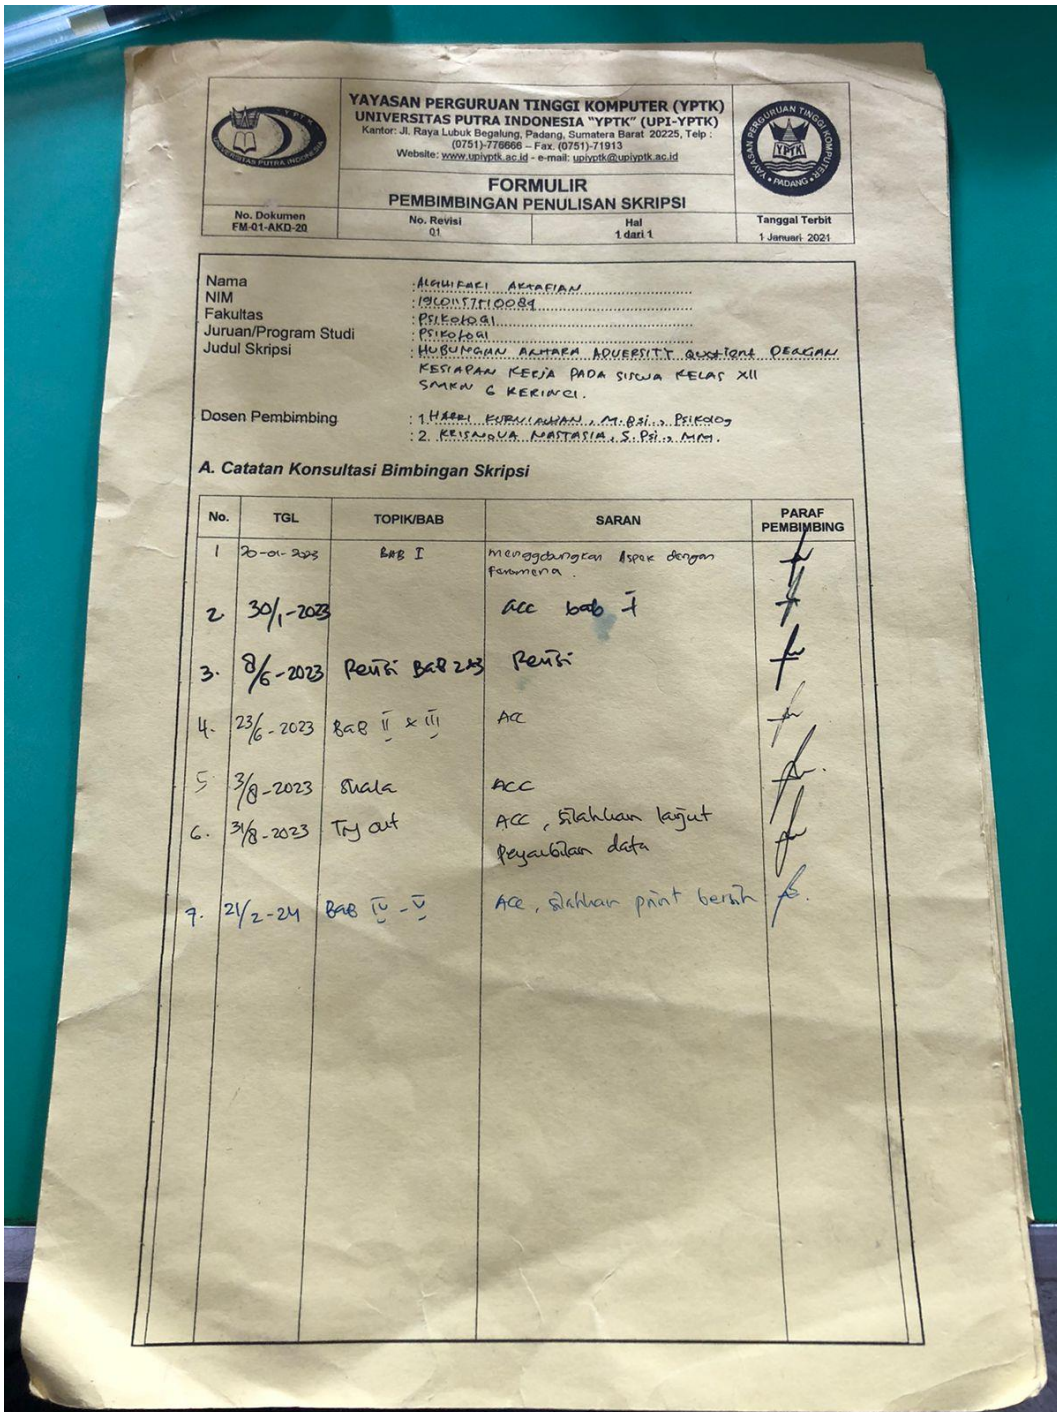 YAYASAN PERGURUAN TINGGI KOMPUTER (YPTK)
UNIVERSITAS PUTRA INDONESIA "YPTK" (UPI-YPTK)
Kantor: Jl. Raya Lubuk Begalung, Padang, Sumatera Barat 20225, Telp :
(0751)-776666 – Fax. (0751)-71913
Website: www.upiyptk.ac.id - e-mail: upiyptk@upiyptk.ac.id
Y.P.T.K
UNIVERSITAS PUTRA INDONESIA
YAYASAN PERGURUAN TINGGI KOMPUTER
YPTK
PADANG
FORMULIR
PEMBIMBINGAN PENULISAN SKRIPSI
No. Dokumen No. Revisi Hal Tanggal Terbit
FM-01-AKD-20 01 1 dari 1 1 Januari 2021
Nama : AKTAFIAN
NIM
Fakultas : PSIKOLOGI
Juruan/Program Studi : PSIKOLOGI
Judul Skripsi : HUBUNGAN ANTARA ADVERSITY QUOTIENT DENGAN
KESIAPAN KERJA PADA SISWA KELAS XII
SMKN 6 KERINCI.
Dosen Pembimbing : 1. HARRI KURNIAWAN, M.Psi., Psikolog
: 2. KRISNOVA NASTASIA, S.Psi., MM.
A. Catatan Konsultasi Bimbingan Skripsi
No. TGL TOPIK/BAB SARAN PARAF PEMBIMBING
1 20-01-2023 BAB I menggabungkan Aspek dengan
Fenomena.
2. 30/1-2023 acc bab I
3. 8/6-2023 Revisi BaB 2&3 Revisi
4. 23/6-2023 BaB II & III ACC
5 3/8-2023 Skala ACC
6. 31/8-2023 Try out ACC, silahkan lanjut
pengambilan data
7. 21/2-24 BaB IV-V ACC, silahkan print bersih